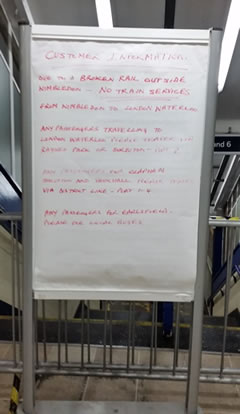 CUSTOMER INFORMATION
DUE TO A BROKEN RAIL OUTSIDE
WIMBLEDON - NO TRAIN SERVICES
FROM WIMBLEDON TO LONDON WATERLOO
ANY PASSENGERS TRAVELLING TO
LONDON WATERLOO PLEASE TRAVEL VIA
ANY PASSENGERS FOR CLAPHAM
JUNCTION AND VAUXHALL PLEASE TRAVEL
VIA DISTRICT LINE -
ANY PASSENGERS FOR EARLSFIELD -
PLEASE USE LOCAL BUSES
and 6